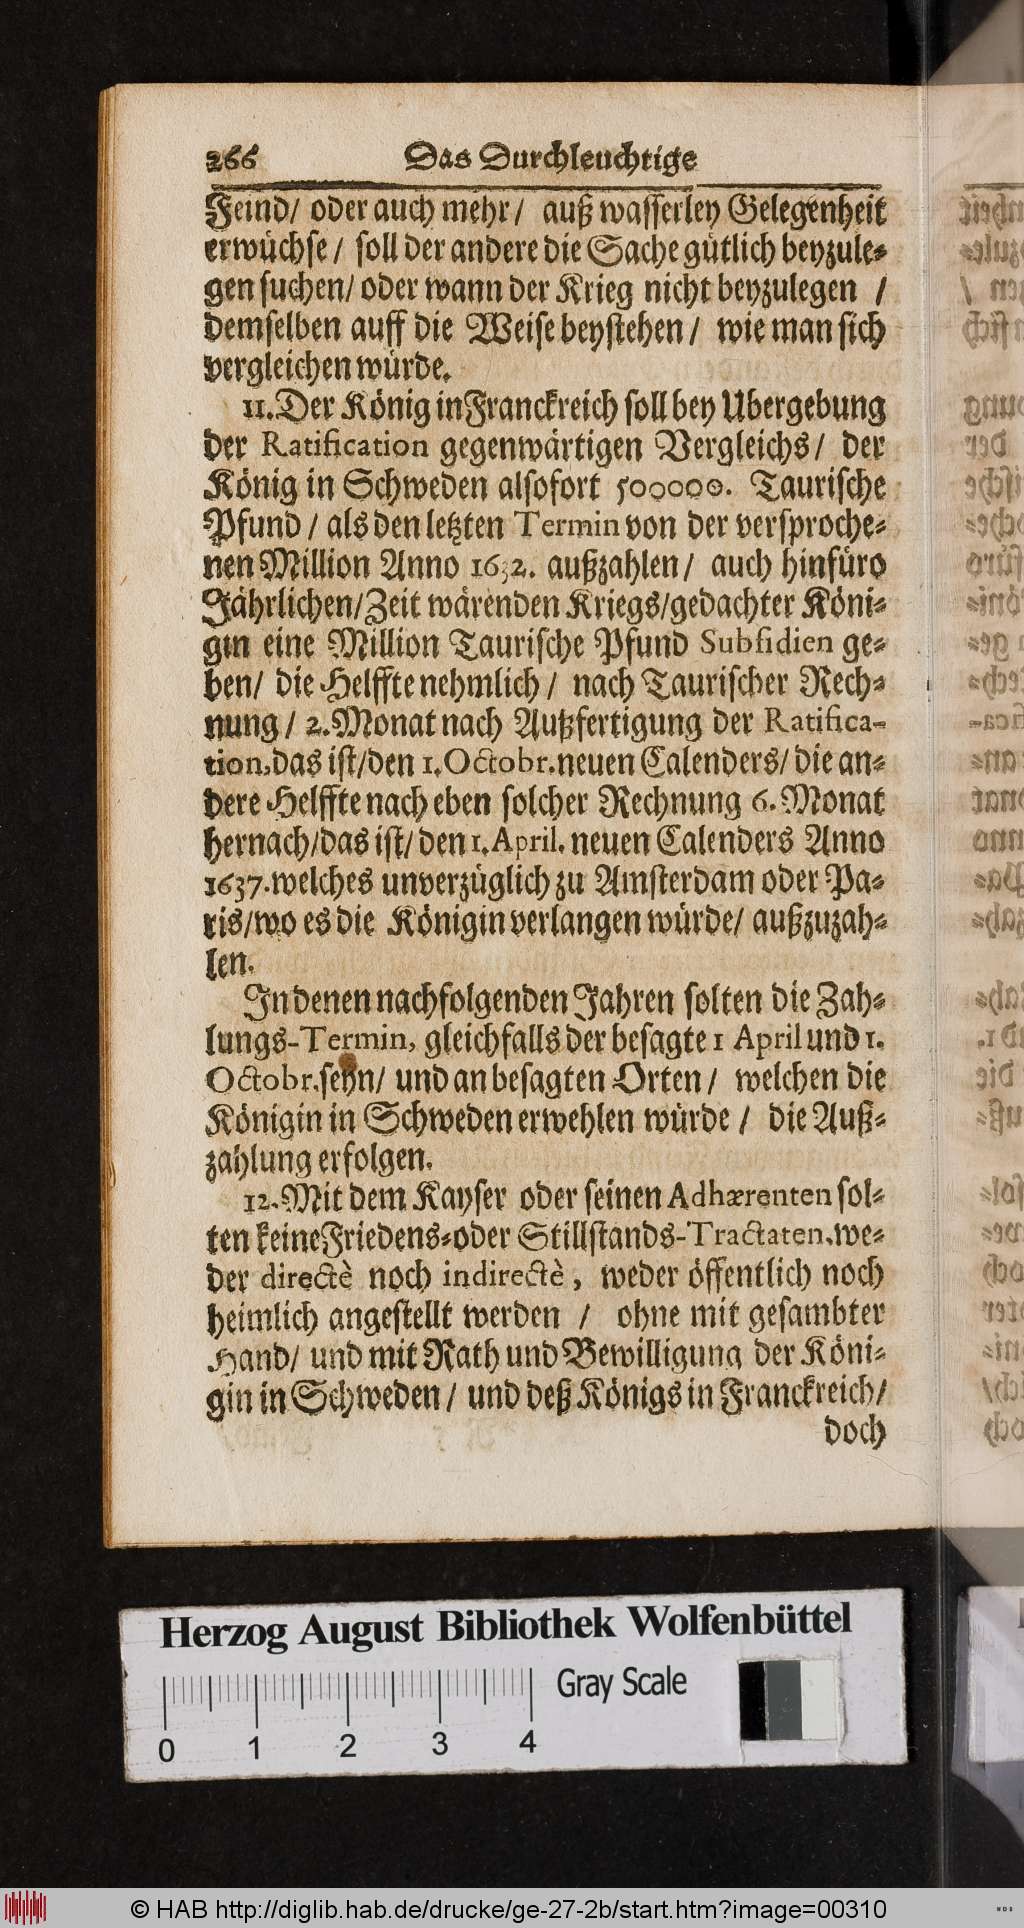 266 Das Durchleuchtige
Feind/ oder auch mehr/ auß wasserley Gelegenheit
erwüchse/ soll der andere die Sache gütlich beyzule-
gen suchen/ oder wann der Krieg nicht beyzulegen /
demselben auff die Weise beystehen/ wie man sich
vergleichen würde.
11. Der König in Franckreich soll bey Ubergebung
der Ratification gegenwärtigen Vergleichs/ der
König in Schweden alsofort 500000. Taurische
Pfund / als den letzten Termin von der versproche-
nen Million Anno 1632. außzahlen/ auch hinfüro
Jährlichen/ Zeit wärenden Kriegs/ gedachter Köni-
gin eine Million Taurische Pfund Subsidien ge-
ben/ die Helffte nehmlich / nach Taurischer Rech-
nung / 2. Monat nach Außfertigung der Ratifica-
tion, das ist/ den 1. Octobr. neuen Calenders/ die an-
dere Helffte nach eben solcher Rechnung 6. Monat
hernach/ das ist/ den 1. April. neuen Calenders Anno
1637. welches unverzüglich zu Amsterdam oder Pa-
ris/ wo es die Königin verlangen würde/ außzuzah-
len.
In denen nachfolgenden Jahren solten die Zah-
lungs-Termin, gleichfalls der besagte 1 April und 1.
Octobr. seyn/ und an besagten Orten/ welchen die
Königin in Schweden erwehlen würde / die Auß-
zahlung erfolgen.
12. Mit dem Kayser oder seinen Adhærenten sol-
ten keine Friedens- oder Stillstands-Tractaten, we-
der directè noch indirectè, weder öffentlich noch
heimlich angestellt werden / ohne mit gesambter
Hand/ und mit Rath und Bewilligung der Köni-
gin in Schweden / und deß Königs in Franckreich/
doch
Herzog August Bibliothek Wolfenbüttel
Gray Scale
0 1 2 3 4
© HAB http://diglib.hab.de/drucke/ge-27-2b/start.htm?image=00310